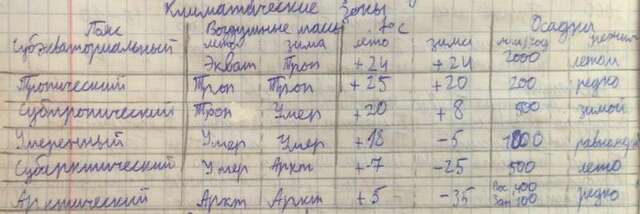 Климатические Зоны
Пояс Воздушные массы t°C Осадки
лето зима лето зима мм/год режим
Субэкваториальный Экват Троп +24 +24 2000 летом
Тропический Троп Троп +25 +20 200 редко
Субтропический Троп Умер +20 +8 500 зимой
Умеренный Умер Умер +18 -5 1000
Субарктический Умер Аркт +7 -25 500 лето
Арктический Аркт Аркт +5 -35 400 100 редко